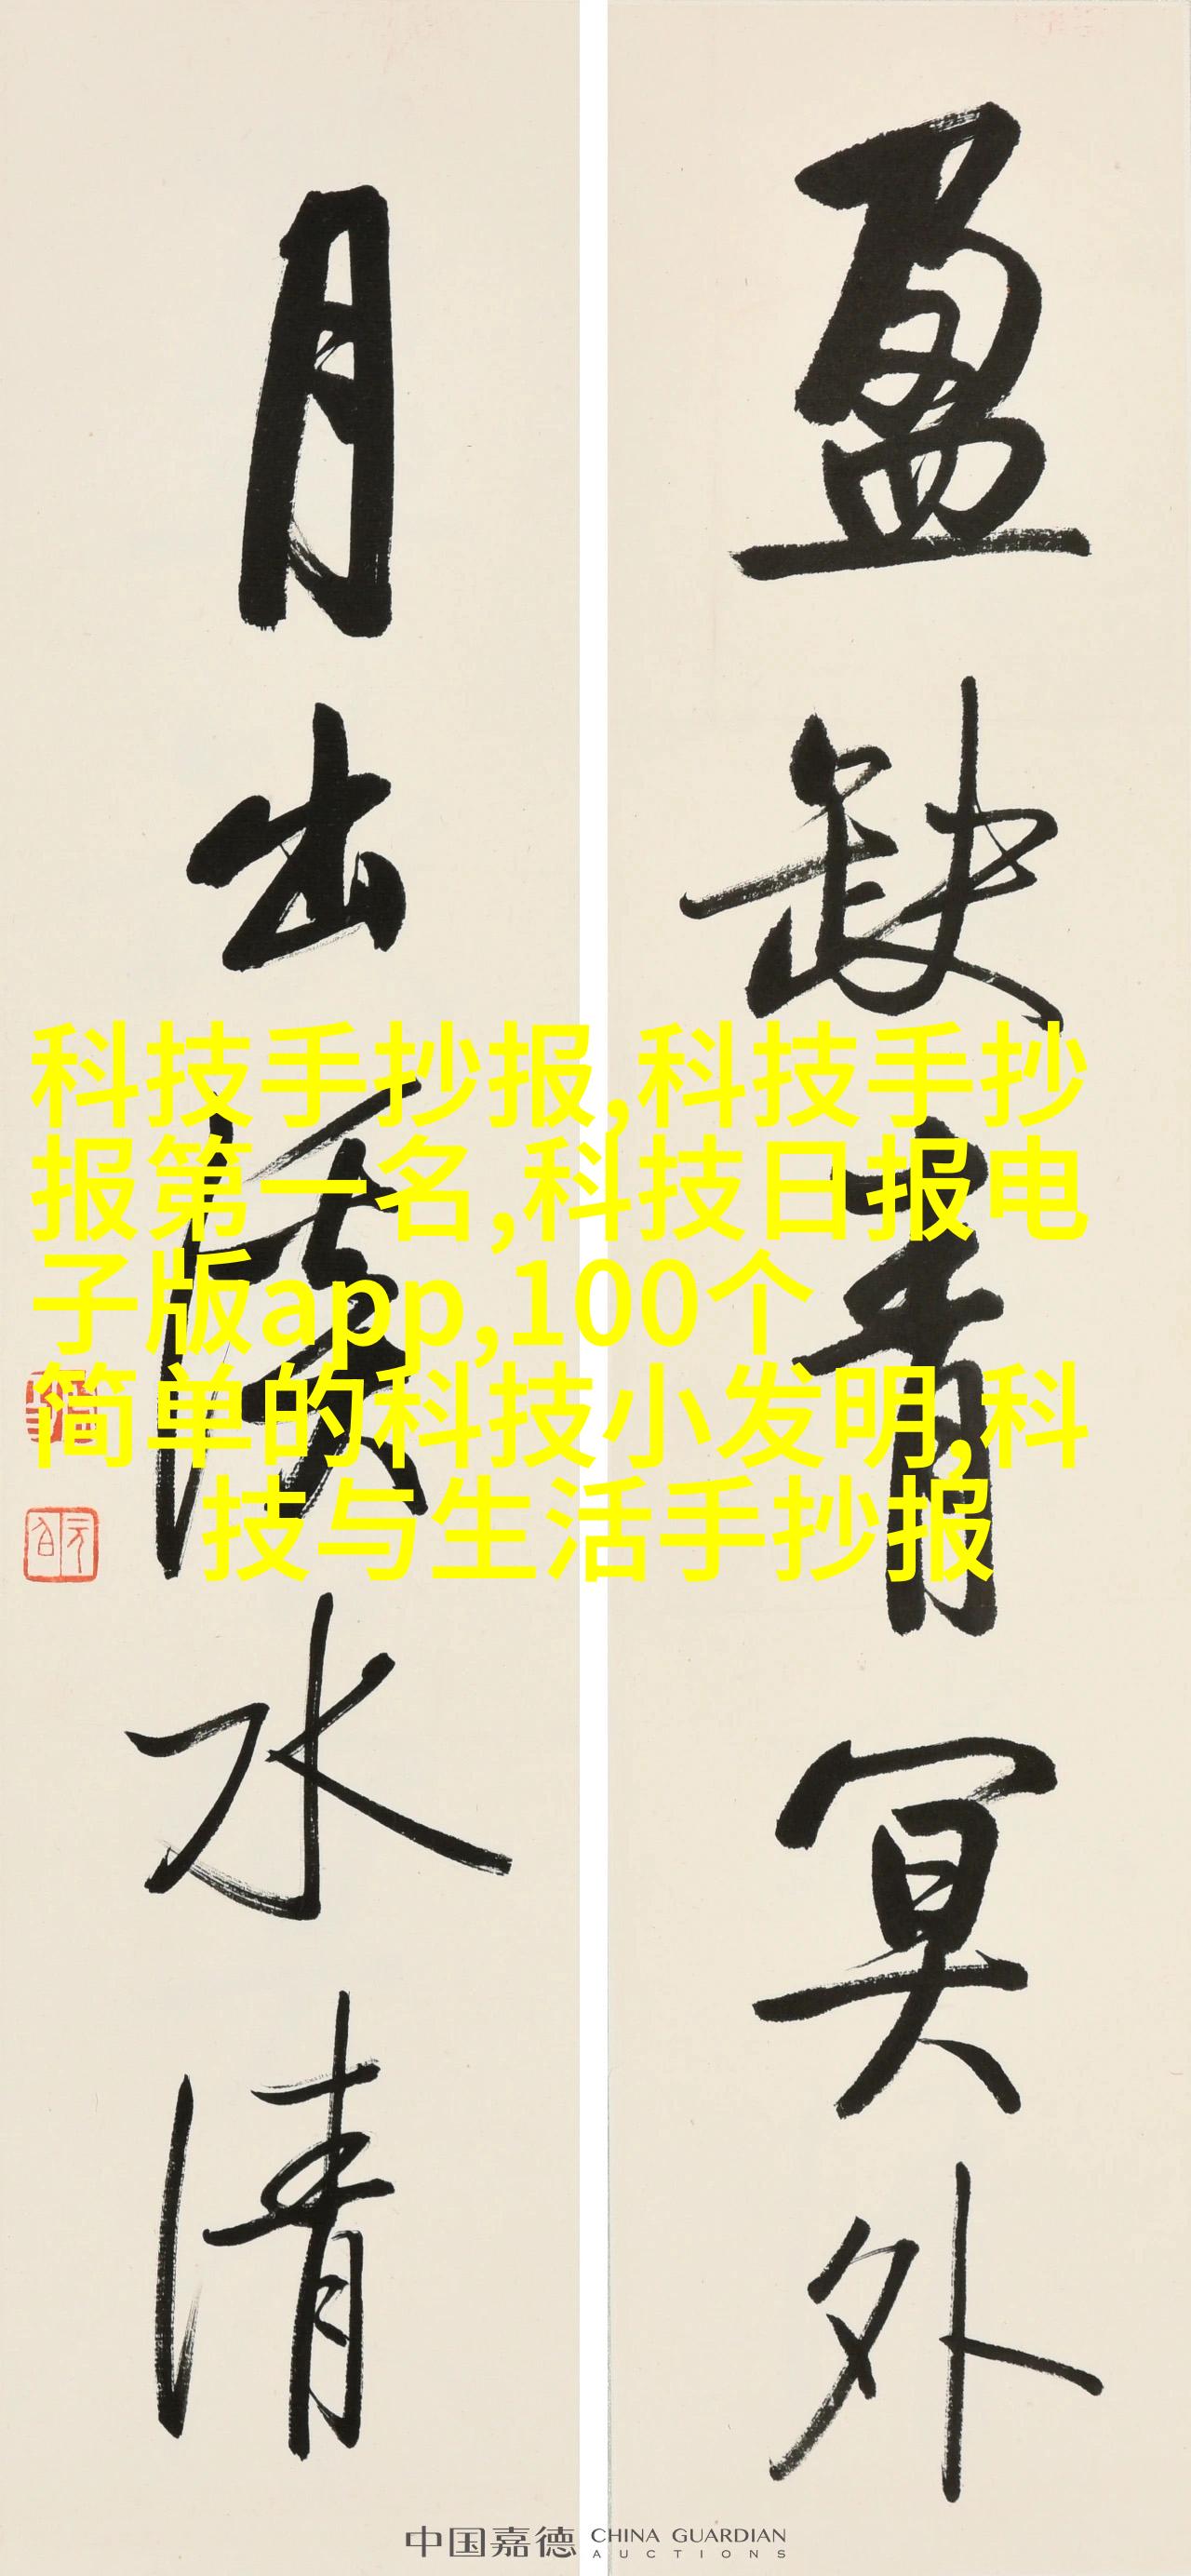 盈缺青冥外
月出
水清
科技手抄报,科技手抄
报第一名,科技日报电
子版app,100个
简单的科技小发明,科
技与生活手抄报
中国嘉德 CHINA GUARDIAN
AUCTIONS